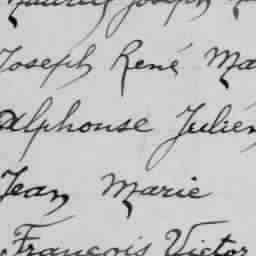 Joseph René Ma
Alphonse Julien
Jean Marie
François Victor